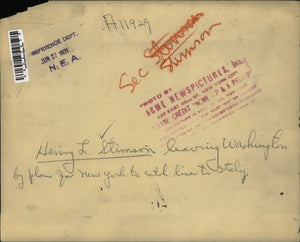 A11929
REFERENCE DEPT.
JUN 27 1931
N. E. A.
Sec Stevenson
Stimson
PHOTO BY
ACME NEWSPICTURES, Inc.
NEW YORK CITY
CREDIT "ACME - P & A PHOTO"
Henry L. Stimson leaving Washington
by plane for New York to catch liner to Italy